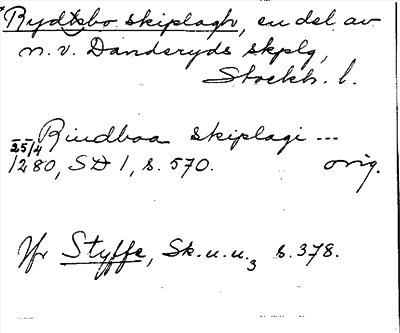 Rydbo skiplagh, en del av
n. v. Danderyds skplg,
Stockh. l.
Riudboa skiplagi ...
25/4 1280, SD 1, s. 570. orig.
Jfr Styffe, Sk. u. u.3 s. 378.